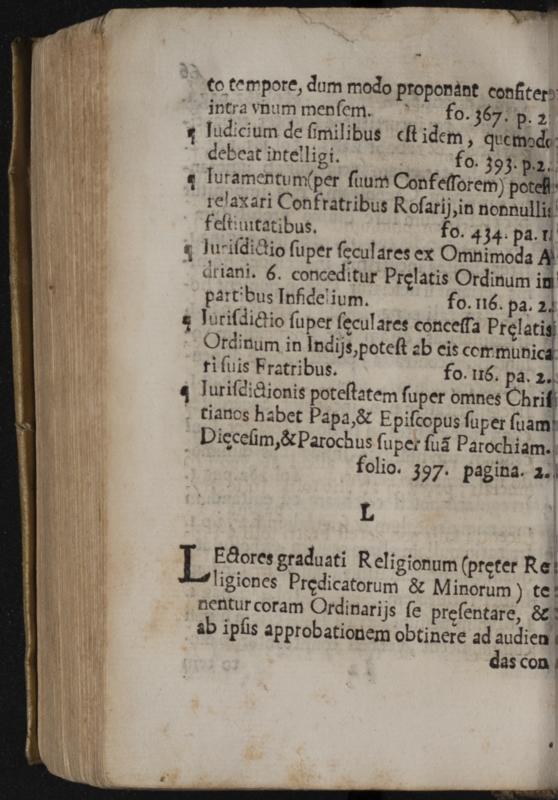 to tempore, dum modo proponant confiter
intra vnum mensem. fo. 367. p. 2
¶ Iudicium de similibus est idem, quomodo
debeat intelligi. fo. 393. p.2.
¶ Iuramentum(per suum Confessorem) potest
relaxari Confratribus Rosarij,in nonnullis
festiuitatibus. fo. 434. pa. 1.
¶ Iurisdictio super sęculares ex Omnimoda A
driani. 6. conceditur Pręlatis Ordinum in
partibus Infidelium. fo. 116. pa. 2.
¶ Iurisdictio super sęculares concessa Pręlatis
Ordinum in Indijs,potest ab eis communica
ri suis Fratribus. fo. 116. pa. 2.
¶ Iurisdictionis potestatem super omnes Chris
tianos habet Papa,& Episcopus super suam
Dięcesim,& Parochus super suã Parochiam.
folio. 397. pagina. 2.
L
LEctores graduati Religionum (pręter Re
ligiones Prędicatorum & Minorum) te
nentur coram Ordinarijs se pręsentare, &
ab ipsis approbationem obtinere ad audien
das con